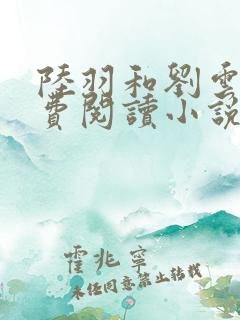 陸羽和劉雲
費閱讀小說
霍兆寧
未經同意禁止轉載